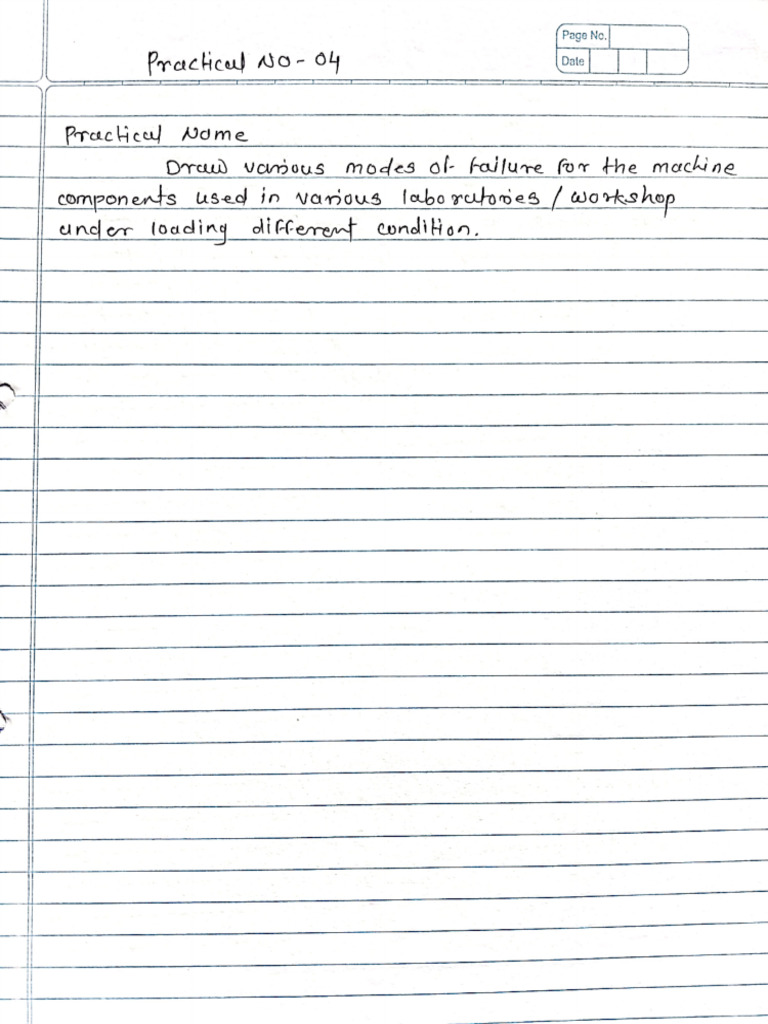 Practical No - 04
Page No.
Date
Practical Name
Draw various modes of failure for the machine
components used in various laboratories / workshop
under loading different condition.